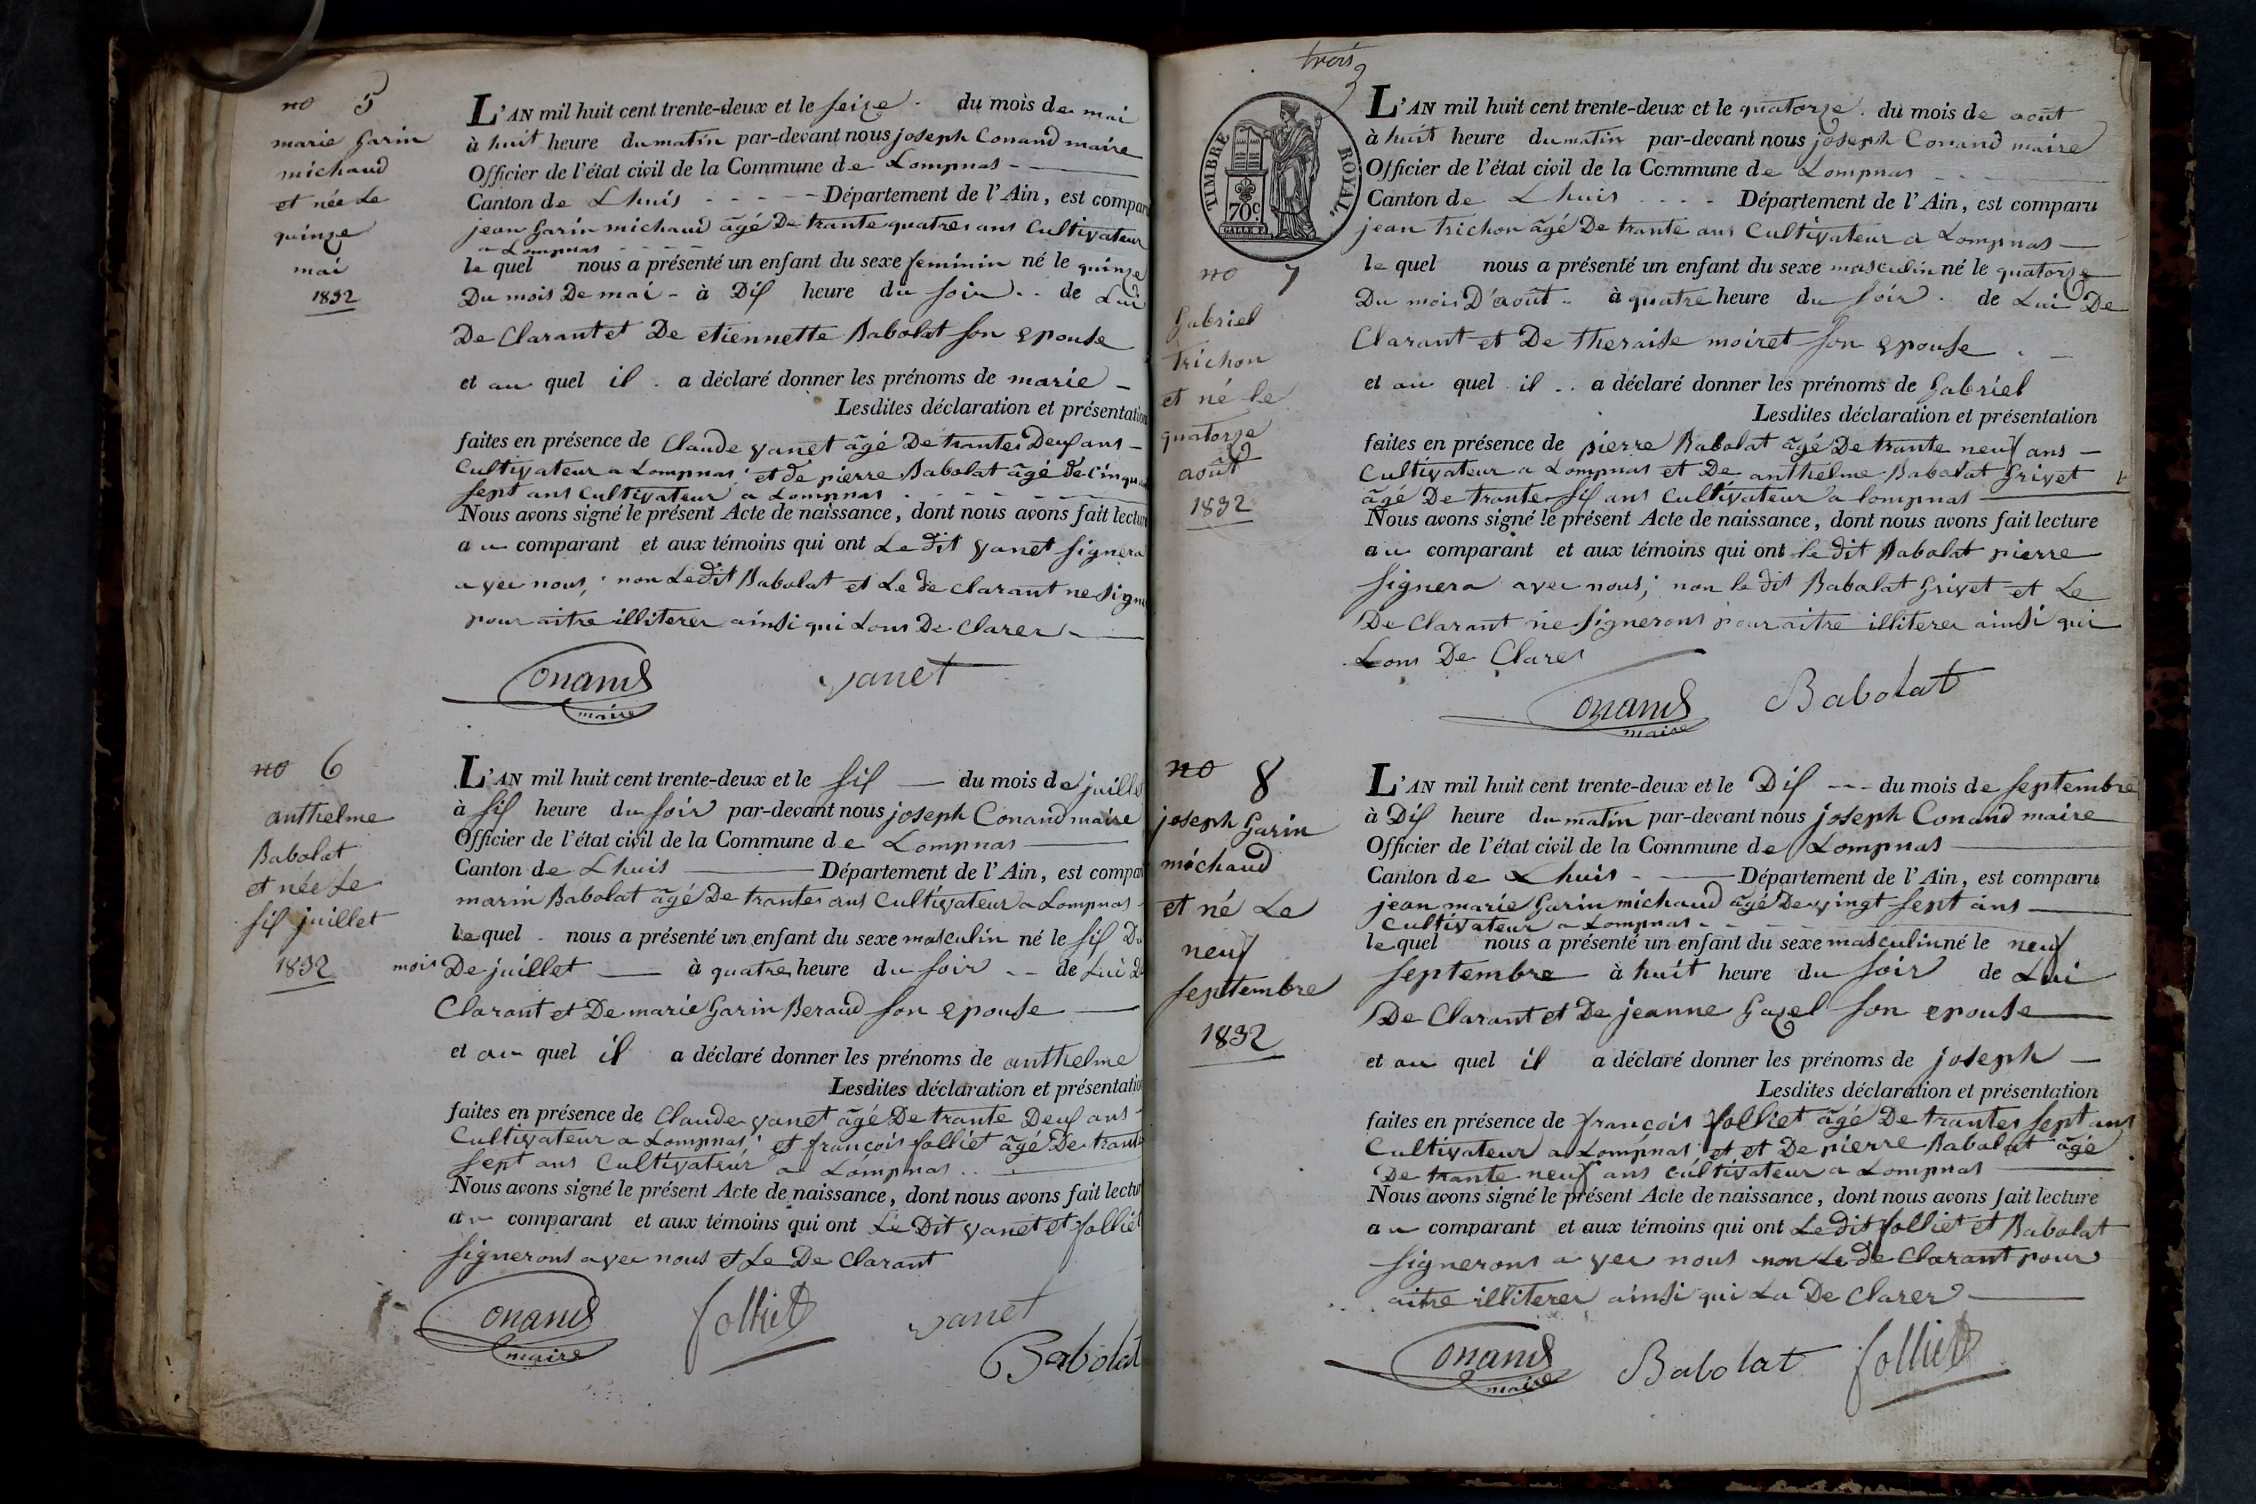 no 5
marie Garin
michaud
et née Le
quinze
mai
1832
L'AN mil huit cent trente-deux et le seize du mois de mai
à huit heure du matin par-devant nous joseph Conand maire
Officier de l'état civil de la Commune de Lompnas
Canton de Lhuis - - - - Département de l'Ain, est compar
jean Garin michaud âgé De trante quatres ans Cultivateur
a Lompnas
le quel nous a présenté un enfant du sexe feminin né le quinze
Du mois De mai - à Dix heure du soir - - de Lui
De Clarant et De etiennette Babolat son epouse
et au quel il a déclaré donner les prénoms de marie -
Lesdites déclaration et présentation
faites en présence de Claude vanet âgé De trantes Deux ans -
Cultivateur a Lompnas; et de pierre Babolat âgé de Cinqua
sept ans Cultivateur a Lompnas
Nous avons signé le présent Acte de naissance, dont nous avons fait lectur
au comparant et aux témoins qui ont Le dit vanet signera
avec nous; non Ledit Babolat et Le de clarant ne signe
pour aitre illiterer ainsi qui Lons De clarer
Conand
maire
vanet
no 6
anthelme
Babolat
et née Le
six juillet
1832
L'AN mil huit cent trente-deux et le six — du mois de juillet
à six heure du soir par-devant nous joseph Conand maire
Officier de l'état civil de la Commune de Lompnas
Canton de Lhuis — Département de l'Ain, est compar
marin Babolat âgé De trantes ans Cultivateur a Lompnas
le quel nous a présenté un enfant du sexe masculin né le six Du
mois De juillet — à quatre heure du soir - - de Lui De
Clarant et De marie Garin Beraud son epouse
et au quel il a déclaré donner les prénoms de anthelme
Lesdites déclaration et présentation
faites en présence de Claude vanet âgé De trante Deux ans -
Cultivateur a Lompnas; et françois folliet âgé De trante
sept ans Cultivateur a Lompnas
Nous avons signé le présent Acte de naissance, dont nous avons fait lectur
au comparant et aux témoins qui ont Le Dit vanet et folliet
signerons avec nous et Le De Clarant
Conand
maire
folliet
vanet
Babolat
trois
3
TIMBRE ROYAL
70c
no 7
Gabriel
trichon
et né le
quatorze
août
1832
L'AN mil huit cent trente-deux et le quatorze du mois de août
à huit heure du matin par-devant nous joseph Conand maire
Officier de l'état civil de la Commune de Lompnas
Canton de Lhuis - - - - Département de l'Ain, est comparu
jean trichon âgé De trante ans Cultivateur a Lompnas —
le quel nous a présenté un enfant du sexe masculin né le quatorze
Du mois D'août - à quatre heure du soir - de Lui De
Clarant et De theraise moiret son epouse
et au quel il - - a déclaré donner les prénoms de Gabriel
Lesdites déclaration et présentation
faites en présence de pierre Babolat âgé De trante neuf ans -
Cultivateur a Lompnas et De anthelme Babolat Grivet
âgé De trante six ans Cultivateur a Lompnas
Nous avons signé le présent Acte de naissance, dont nous avons fait lecture
au comparant et aux témoins qui ont le dit Babolat pierre
signera avec nous; non le dit Babolat Grivet et Le
De Clarant ne signerons pour aitre illiterer ainsi qui
Lons De Clarer
Conand
maire
Babolat
no 8
joseph Garin
michaud
et né Le
neuf
septembre
1832
L'AN mil huit cent trente-deux et le Dix - - - du mois de septembre
à Dix heure du matin par-devant nous joseph Conand maire
Officier de l'état civil de la Commune de Lompnas
Canton de Lhuis - — Département de l'Ain, est comparu
jean marie Garin michaud âgé De vingt sept ans
Cultivateur a Lompnas
le quel nous a présenté un enfant du sexe masculin né le neuf
septembre à huit heure du soir de Lui
De Clarant et De jeanne Gazel son epouse
et au quel il a déclaré donner les prénoms de joseph —
Lesdites déclaration et présentation
faites en présence de françois folliet âgé De trantes sept ans
Cultivateur a Lompnas et et De pierre Babolat âgé
De trante neuf ans cultivateur a Lompnas
Nous avons signé le présent Acte de naissance, dont nous avons fait lecture
au comparant et aux témoins qui ont Le dit folliet et Babolat
signerons avec nous non Le de Clarant pour
aitre illiterer ainsi qui La De Clarer
Conand
maire
Babolat
folliet